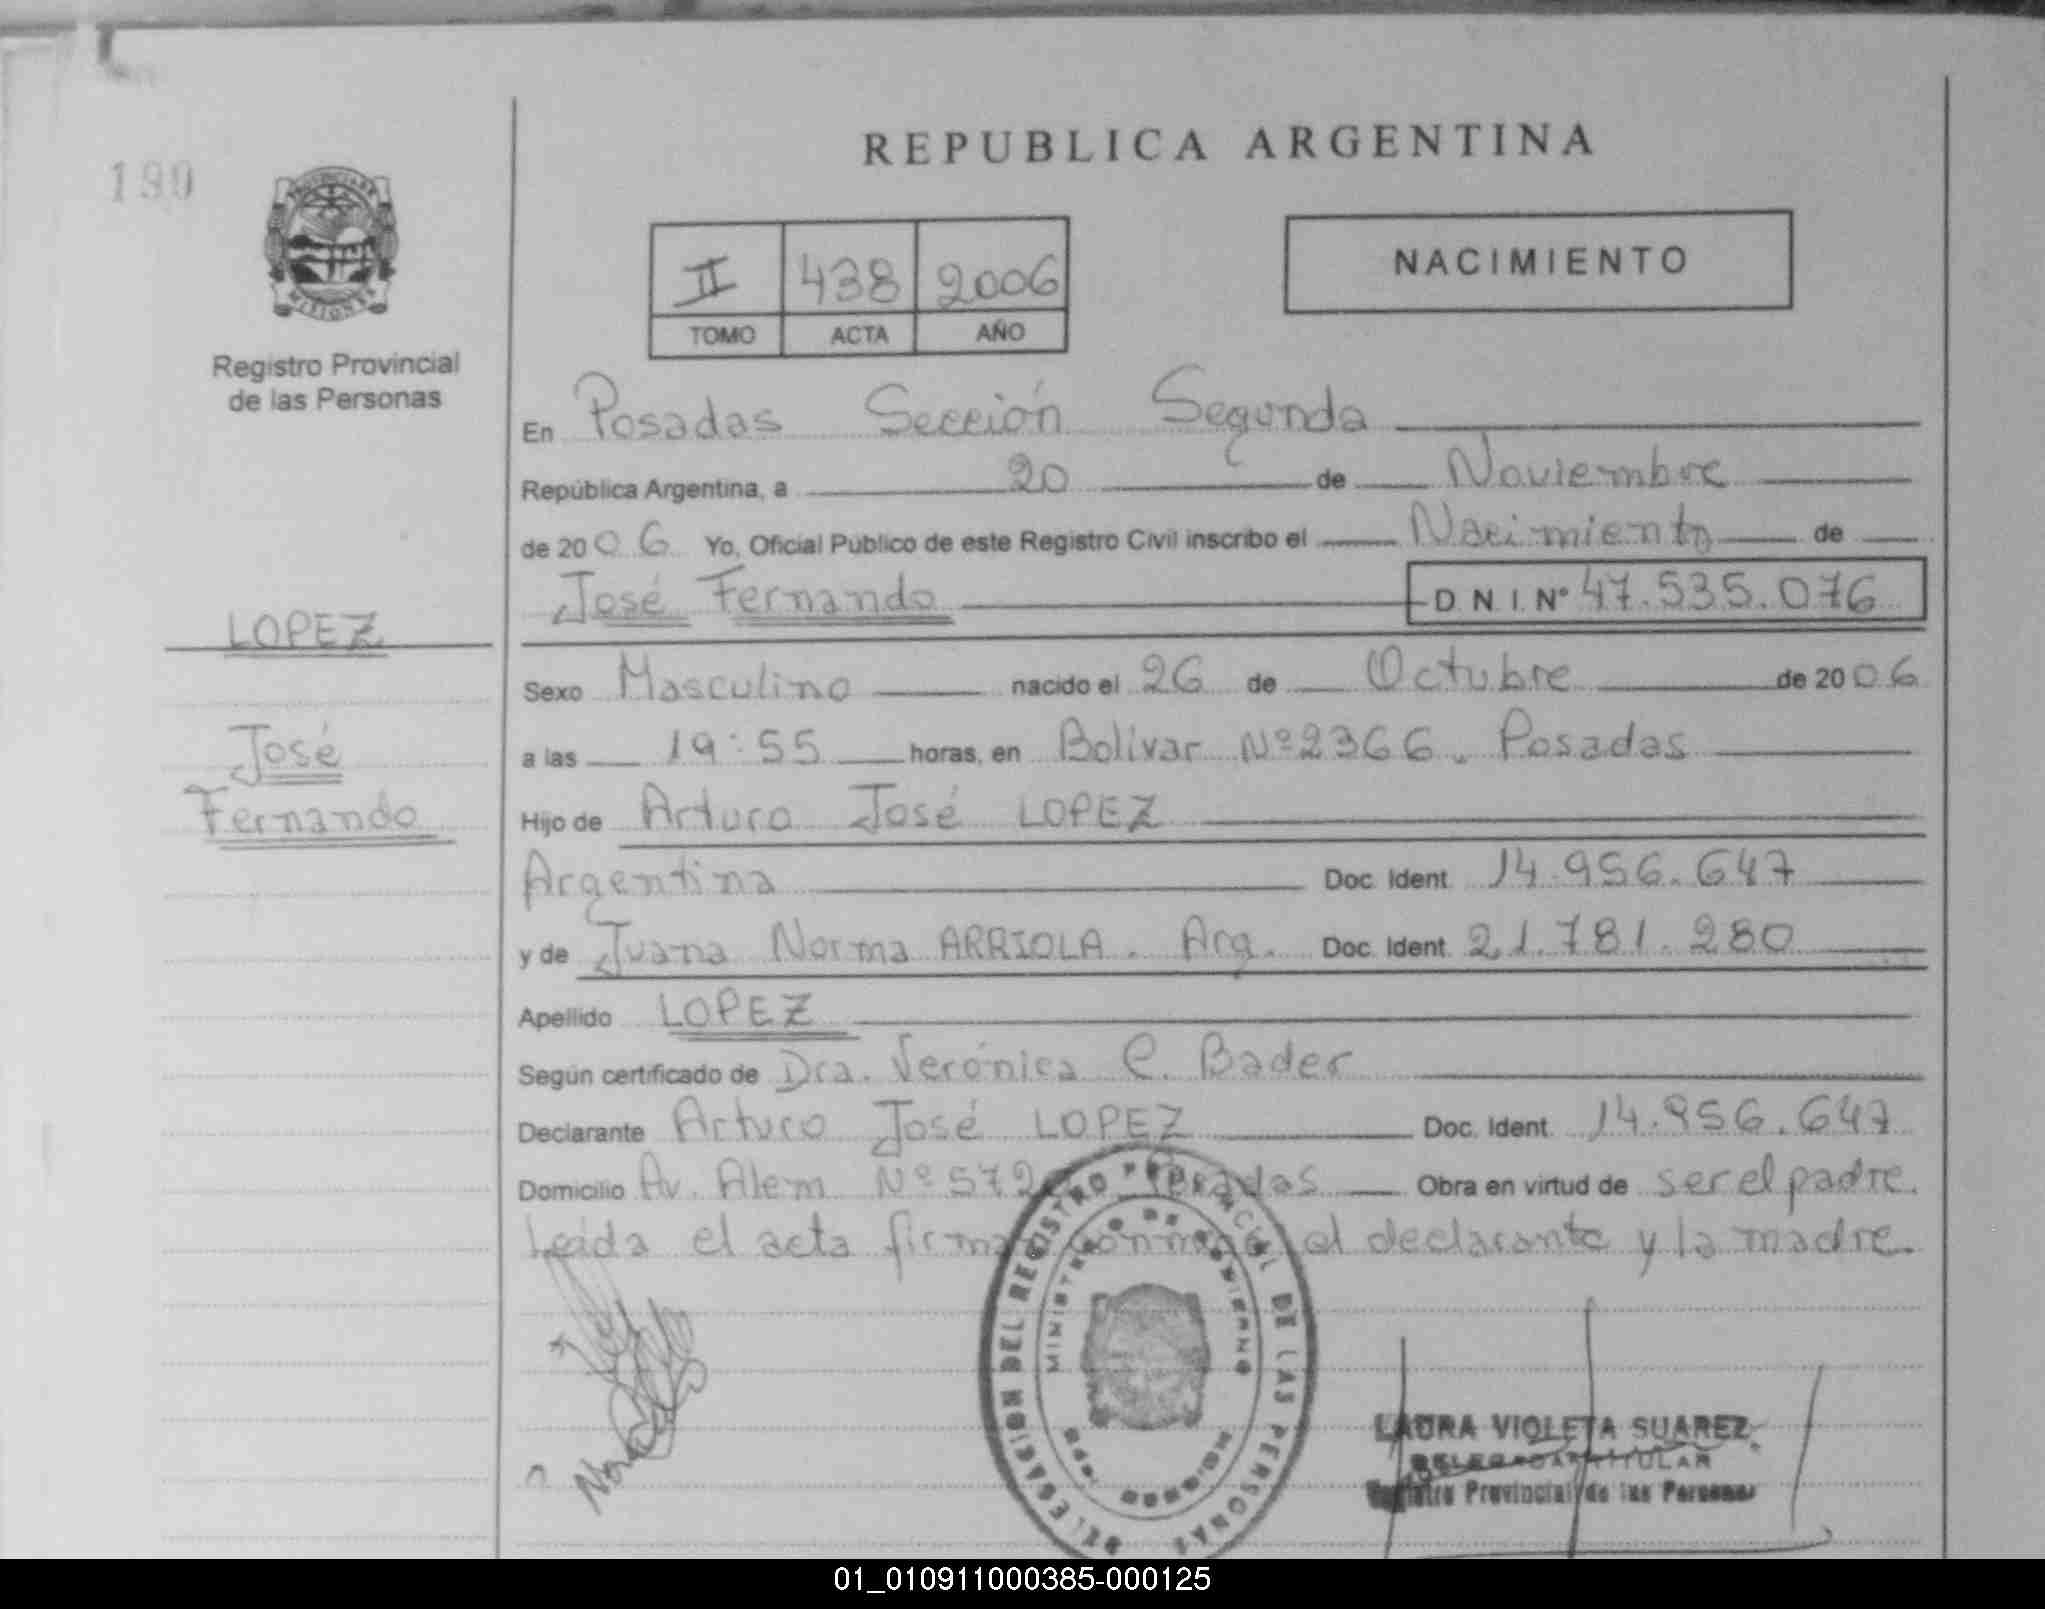 REPUBLICA ARGENTINA
199
PROVINCIA DE
MISIONES
Registro Provincial
de las Personas
II 438 2006
TOMO ACTA AÑO
NACIMIENTO
En Posadas Sección Segunda
República Argentina, a 20 de Noviembre
de 2006 Yo, Oficial Público de este Registro Civil inscribo el Nacimiento de
José Fernando D. N. I. Nº 47.535.076
LOPEZ
Sexo Masculino nacido el 26 de Octubre de 2006
José
a las 19:55 horas, en Bolívar Nº 2366. Posadas
Fernando
Hijo de Arturo José LOPEZ
Argentina Doc. Ident. 14.956.647
y de Juana Norma ARRIOLA. Arg. Doc. Ident. 21.781.280
Apellido LOPEZ
Según certificado de Dra. Verónica C. Bader
Declarante Arturo José LOPEZ Doc. Ident. 14.956.647
Domicilio Av. Alem Nº 572 Posadas Obra en virtud de ser el padre.
Leída el acta firman conmigo el declarante y la madre.
DELEGACION DEL REGISTRO PROVINCIAL DE LAS PERSONAS
MINISTERIO DE GOBIERNO
MISIONES
LAURA VIOLETA SUAREZ
DELEGADA TITULAR
Registro Provincial de las Personas
01_010911000385-000125